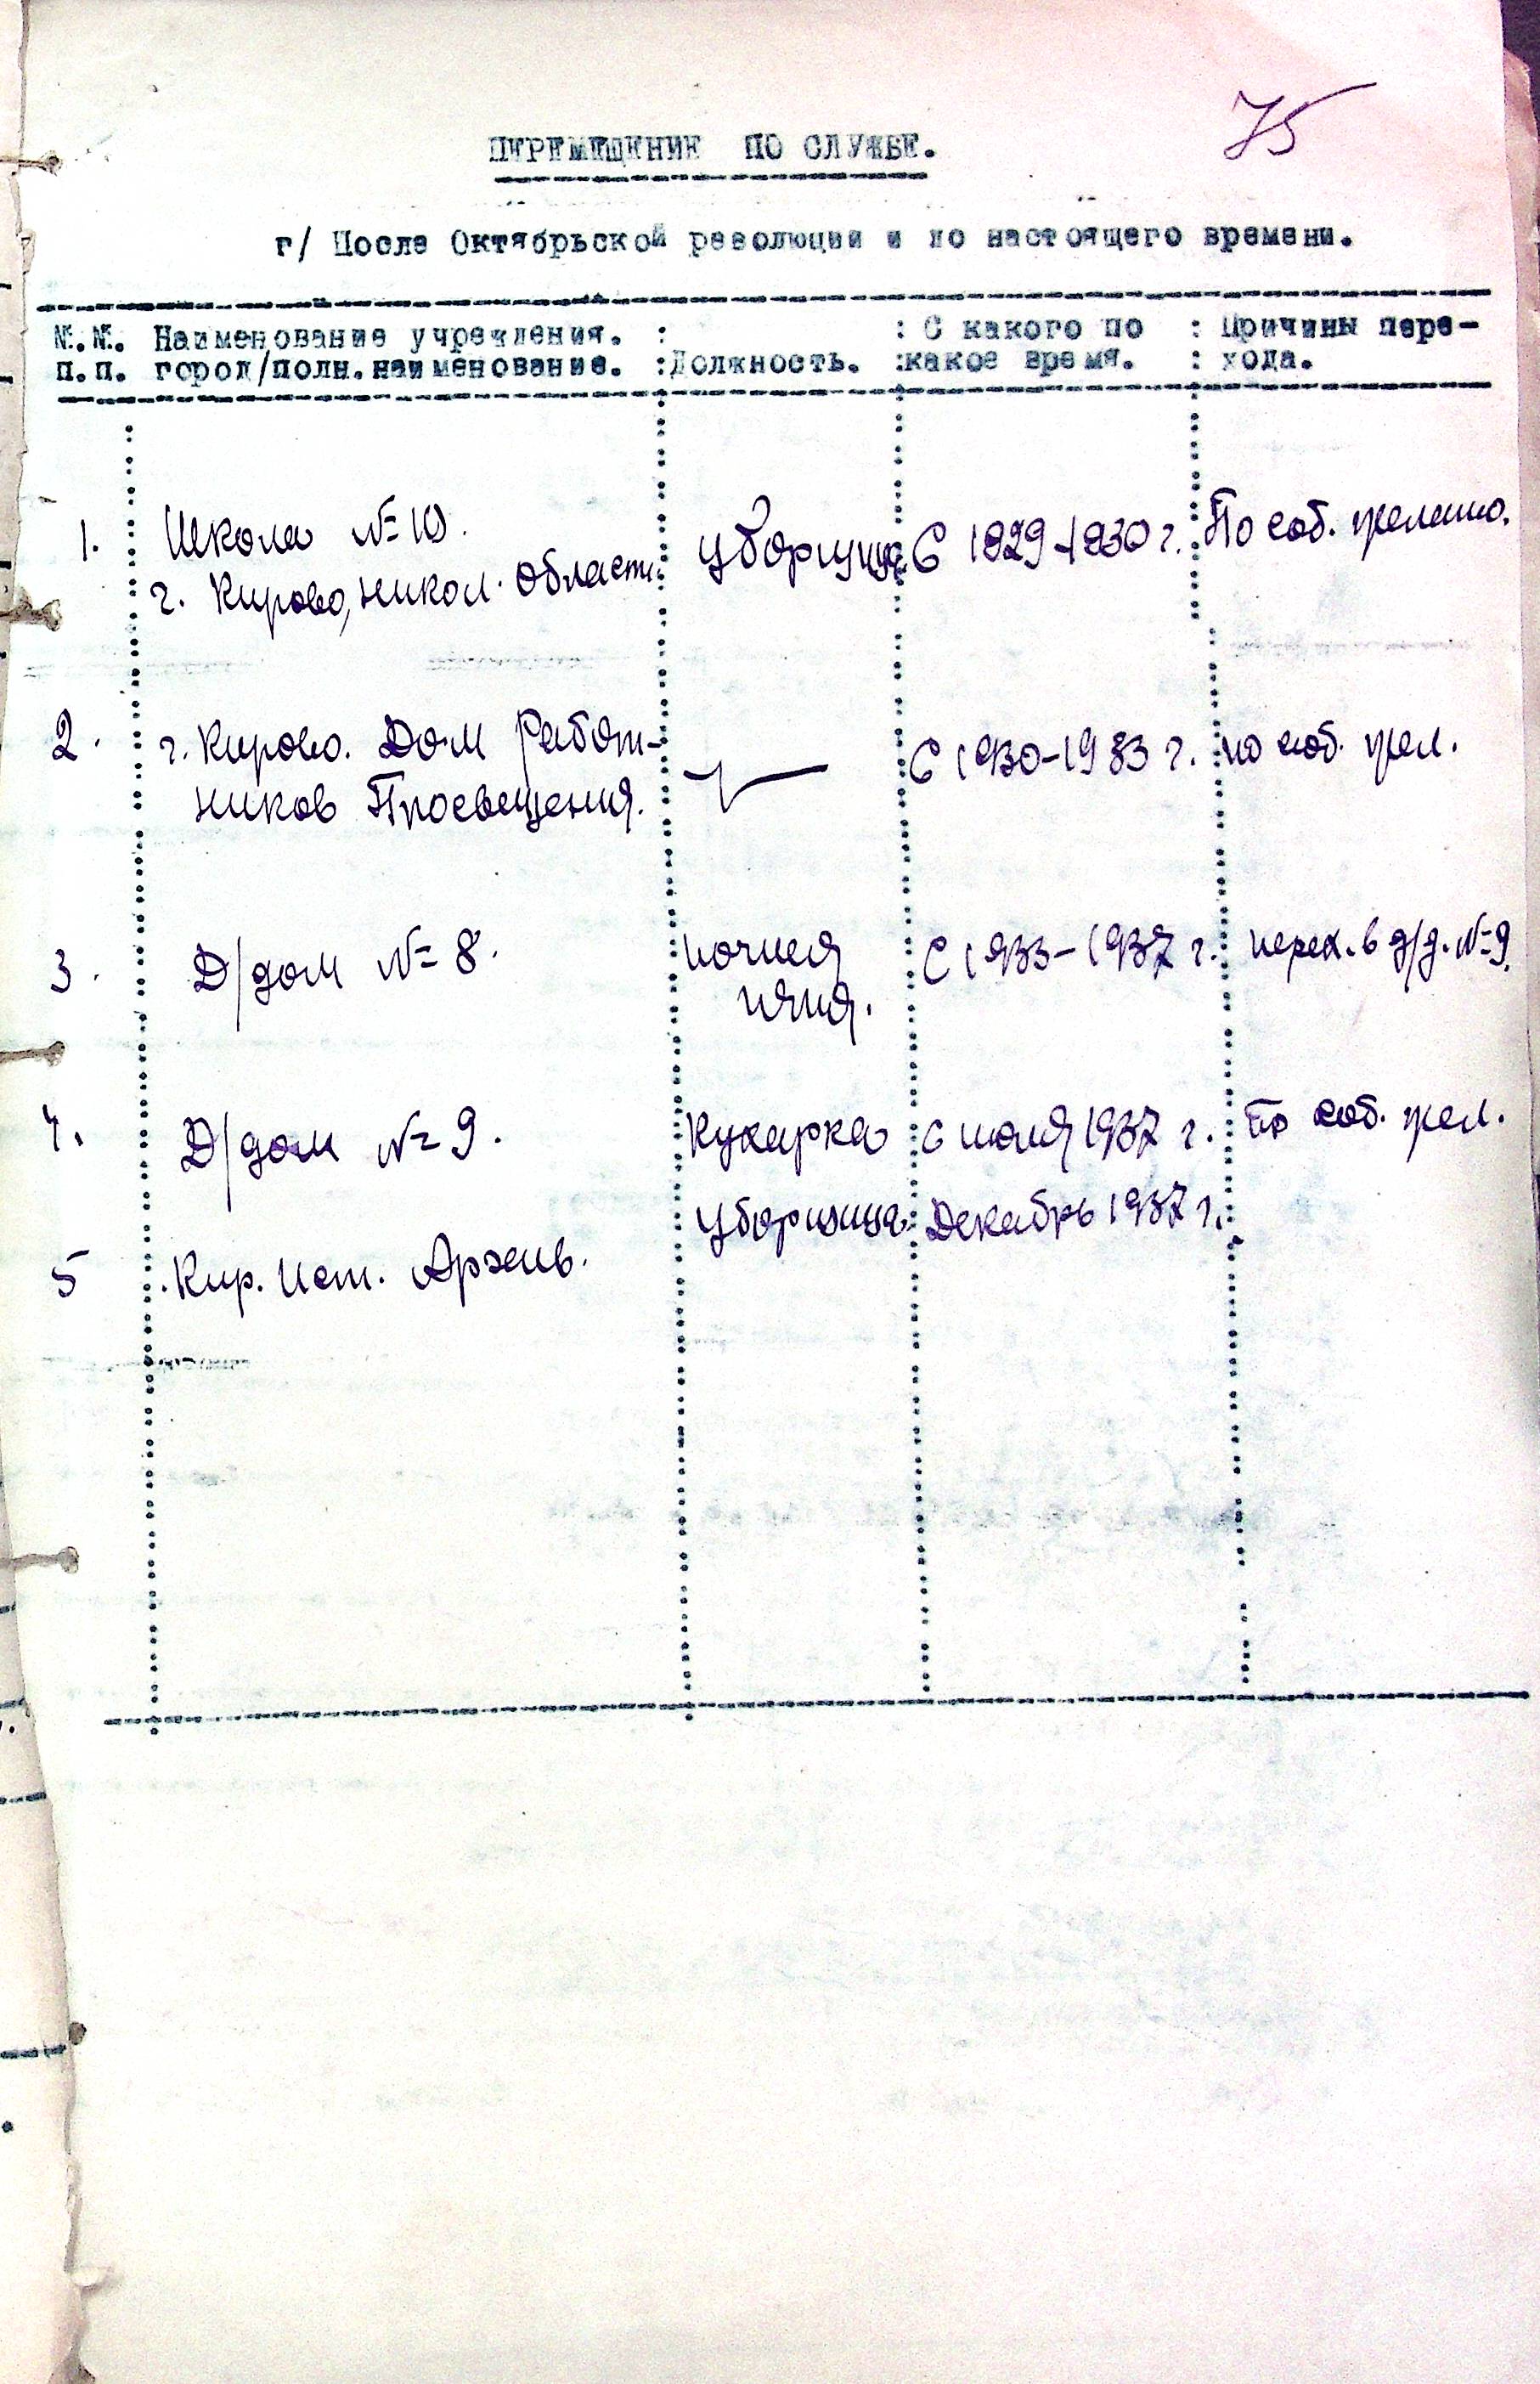 75
ПЕРЕМЕЩЕНИЕ ПО СЛУЖБЕ.
г/ После Октябрьской революции и по настоящего времени.
№.№. Наименование учреждения. : : С какого по : Причины пере-
п.п. город/полн.наименование. :Должность. :какое время. : хода.
1. Школа №10. Уборщица С 1929-1930 г. По соб. желанию.
г. Кирово, Никол. Области
2. г. Кирово. Дом Работ- С 1930-1933 г. по соб. жел.
ников Просвещения.
3. Д/дом № 8. ночная С 1933-1937 г. перех. в д/д. №9.
няня.
4. Д/дом № 9. Кухарка С июля 1937 г. по соб. жел.
Уборщица Декабрь 1937 г.
5 Кир. Ист. Архив.